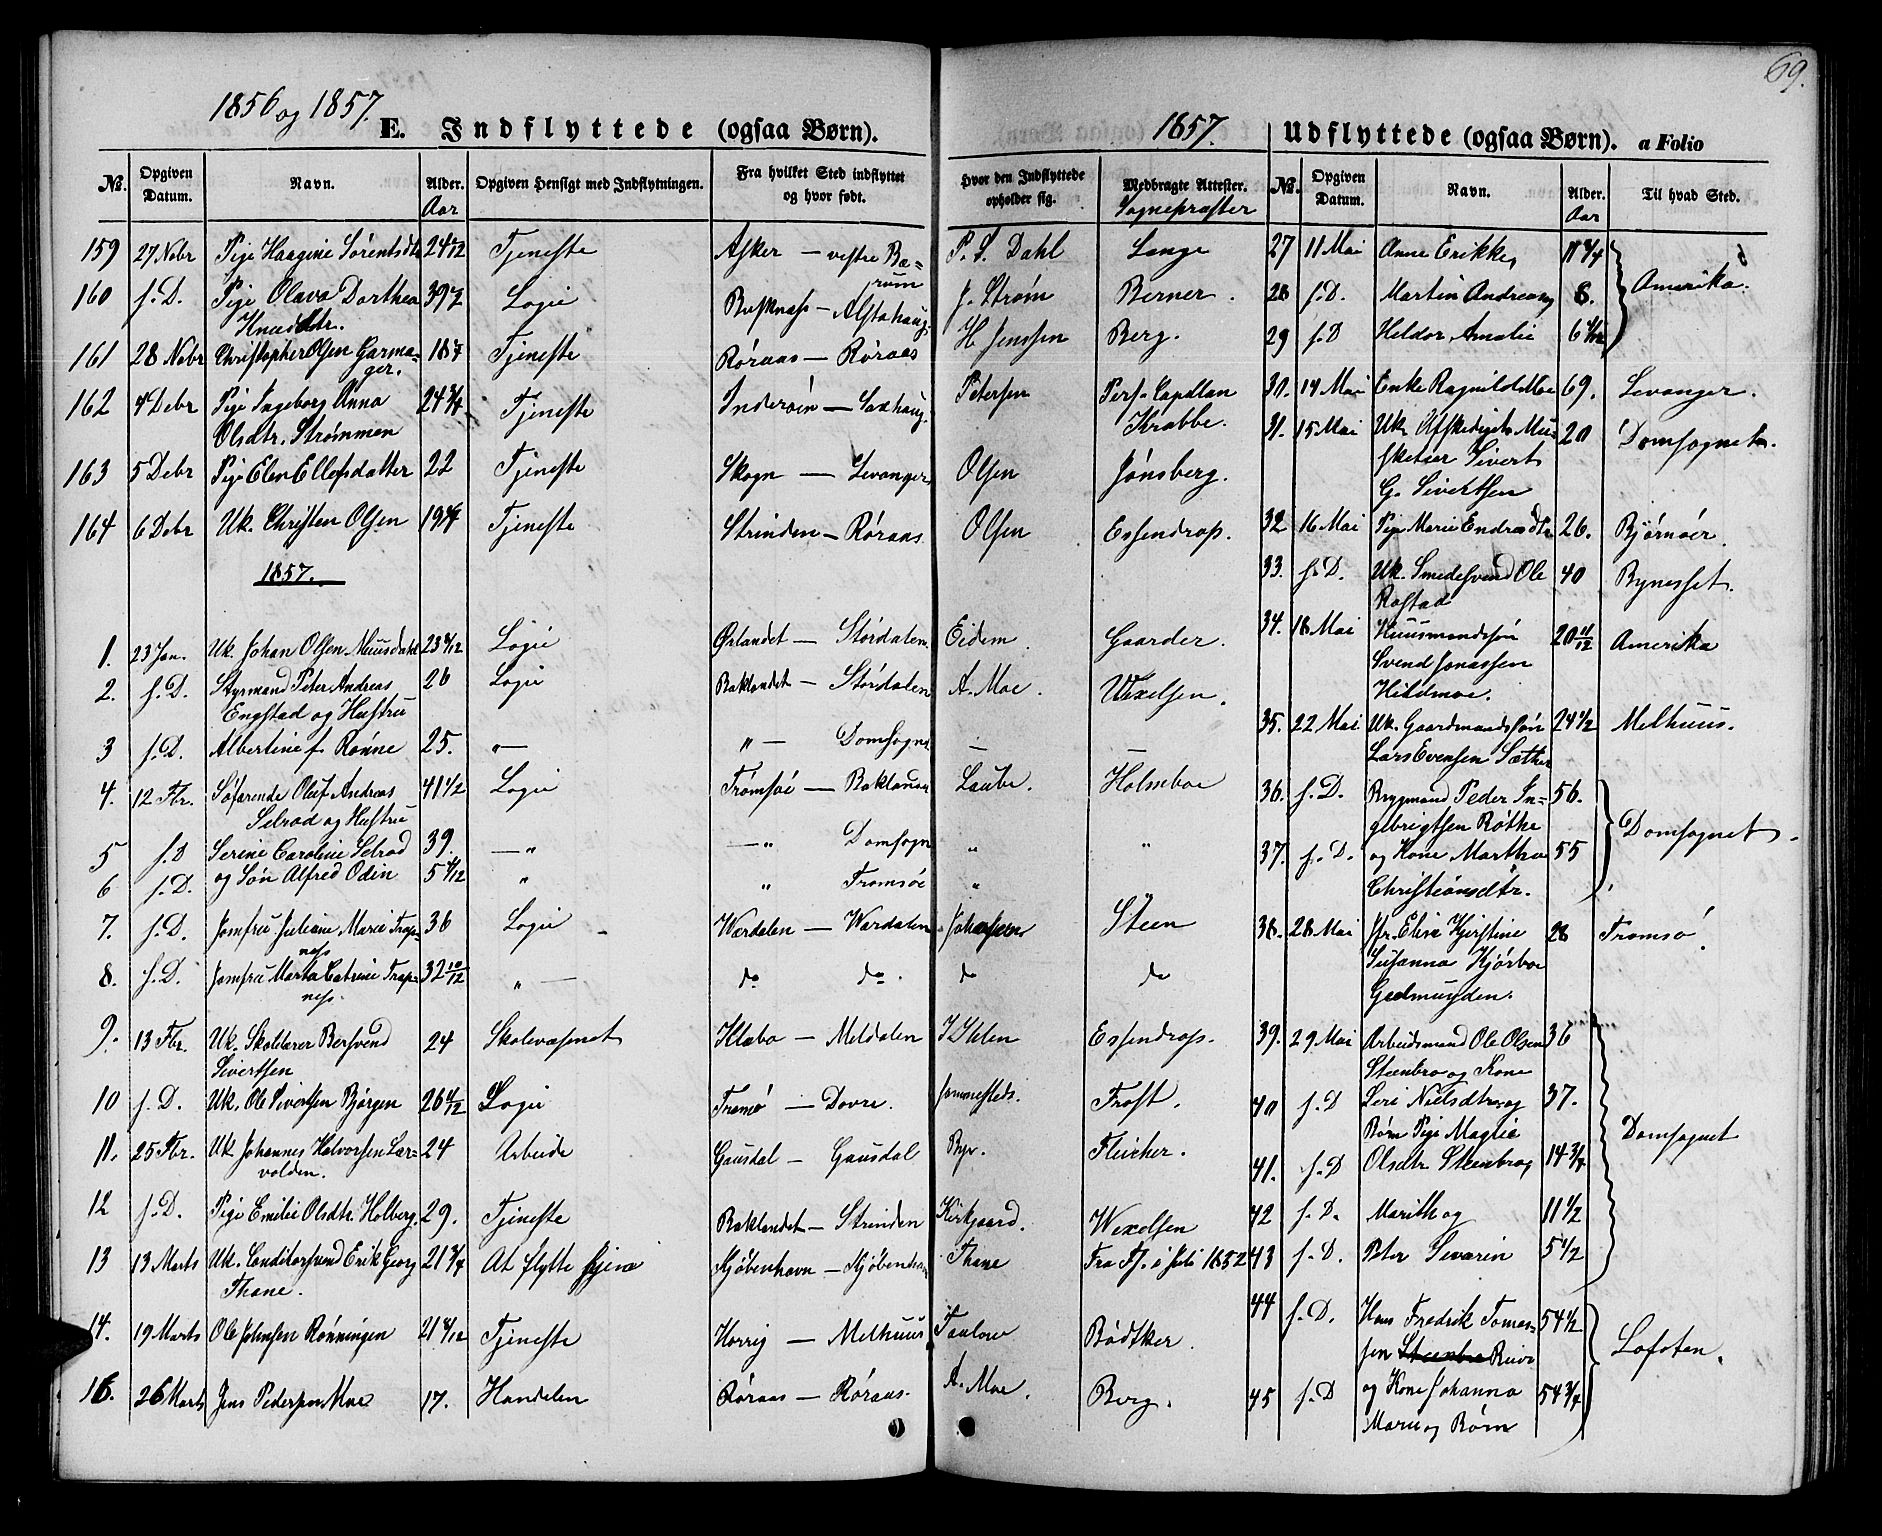 69.
1856 og 1857.
E. Indflyttede (ogsaa Børn).
1857.
Udflyttede (ogsaa Børn). a Folio
No. Opgiven Datum. Navn. Alder. Aar Opgiven Hensigt med Indflytningen. Fra hvilket Sted indflyttet og hvor født. Hvor den Indflyttede opholder sig. Medbragte Attester. Sognepræster
159 27 Nobr Pige Haagine Sørentsdtr 24 Tjeneste Asker — vestre Bærum P. S. Dahl Lange
160 s. D. Pige Olava Dorthea Knudsdtr. 39 Logie — Alstahaug J. Strøm Berner.
161 28 Nobr Christopher Olsen Garmager. 18 Tjeneste Røraas — Røraas H. Jenssen Berg.
162 4 Debr Pige Ingeborg Anna Olsdtr. Strømmen 24 3/4 Tjeneste Inderøin — Saxhaug Petersen Pers. Capellan Krabbe.
163 5 Debr Pige Elen Ellefsdatter 22 Tjeneste Skogn — Levanger Olsen Jønsberg.
164 6 Debr Uk. Christen Olsen 19 Tjeneste Strinden — Røraas Olsen Essendrop.
1857.
1. 23 Jan. Uk. Johan Olsen Muusdahl 23 Logie Ørlandet — Størdalen Eidem Gaarder.
2. s. D. Styrmand Peter Andreas Engstad og Hustru 26 Logie Baklandet — Størdalen A. Moe. Wexelsen.
3 s. D. Albertine f. Rønne 25. " — " — Domsogn — —
4. 12 Fbr. Søfarende Oluf Andreas Selrod og Hustru 41 1/2 Logie Tromsøe — Baklandet Laube. Holmboe
5 s. D Serine Caroline Selrod 39. — " — " Domsogn " "
6 s. D. og Søn Alfred Odin 5 " " Tromsøe " "
7. s. D. Jomfru Juliane Marie Trapnæss 36 Logie Wærdalen — Wærdalen Johansen Steen
8. s. D. Jomfru Marta Catrine Trapness. 32 10/12 " — do do. do do
9. 13 Fbr. Uk. Skolelærer Bersvend Sivertsen 24 Skolevæsenet Klæbo — Meldalen Ihlen Essendrop.
10 s. D. Uk. Ole Sivertsen Bjørgen 26 Logie Tromsø — Dovre. Sammesteds. Frost.
11. 25 Fbr. Uk Johannes Halvorsen Larvolden. 24 Arbeide Gausdal — Gausdal Bye. Fleicher.
12 s. D. Pige Emilie Olsdtr. Holberg. 29. Tjeneste Baklandet — Strinden Kirkgaard. Wexelsen
13 13 Marts Uk. Conditorsvend Erik Georg Thane. 21 3/4 At flytte hjem Kjøbenhavn — Kjøbenhavn Thane Fra Fj. i Juli 1852
14. 19 Marts Ole Johnsen Rønningen 21 Tjeneste Horrig — Melhuus Taulow Bødtker
16. 26 Marts Jens Pedersen Moe 17. Handelen Røraas — Røraas. A. Moe. Berg.
No. Opgiven Datum. Navn. Alder. Aar Til hvad Sted.
27 11 Mai Anne Erikke, 11 3/4 Amerika.
28 s. D. Martin Andreas og 8.
29 s. D Heldor Amalie 6
30. 14 Mai Enke Ragnild Moe 69. Levanger.
31. 15 Mai Uk. Afskediget Musketeer Sivert G. Sivertsen 20 Domsognet.
32 16 Mai Pige Marie Endresdtr 26. Bjørnøer.
33. s. D. Uk. Smedesvend Ole Rostad 40 Bynesset.
34. 18 Mai Huusmandssøn Svend Jonassen Hildmoe. 20 11/12 Amerika
35. 22 Mai Uk. Gaardmandssøn Lars Evensen Sæther 24 1/2 Melhuus.
36. s. D. Brygmand Peder Ingebrigtsen Røthe 56. Domsognet.
37. s. D. og Kone Martha Christiansdtr. 55
38. 28 Mai Jfr. Elise Kjerstine Susanna Kjørboe Gudmunden. 28 Tromsø.
39. 29 Mai Arbeidsmand Ole Olsen Steenbro og Kone 36 Domsognet
40 s. D Seri Nielsdtr og 37.
41. s. D Børn Pige Magtie Olsdtr Steenbro, 14 3/4
42 s. D. Marith og 11 1/2
43 s. D. Peter Severin 5 1/2
44 s. D. Hans Fredrik Tomassen Steenbro Reiva 54 1/2 Lofoten.
45 s. D og Kone Johanna Marie og Børn 54 3/4